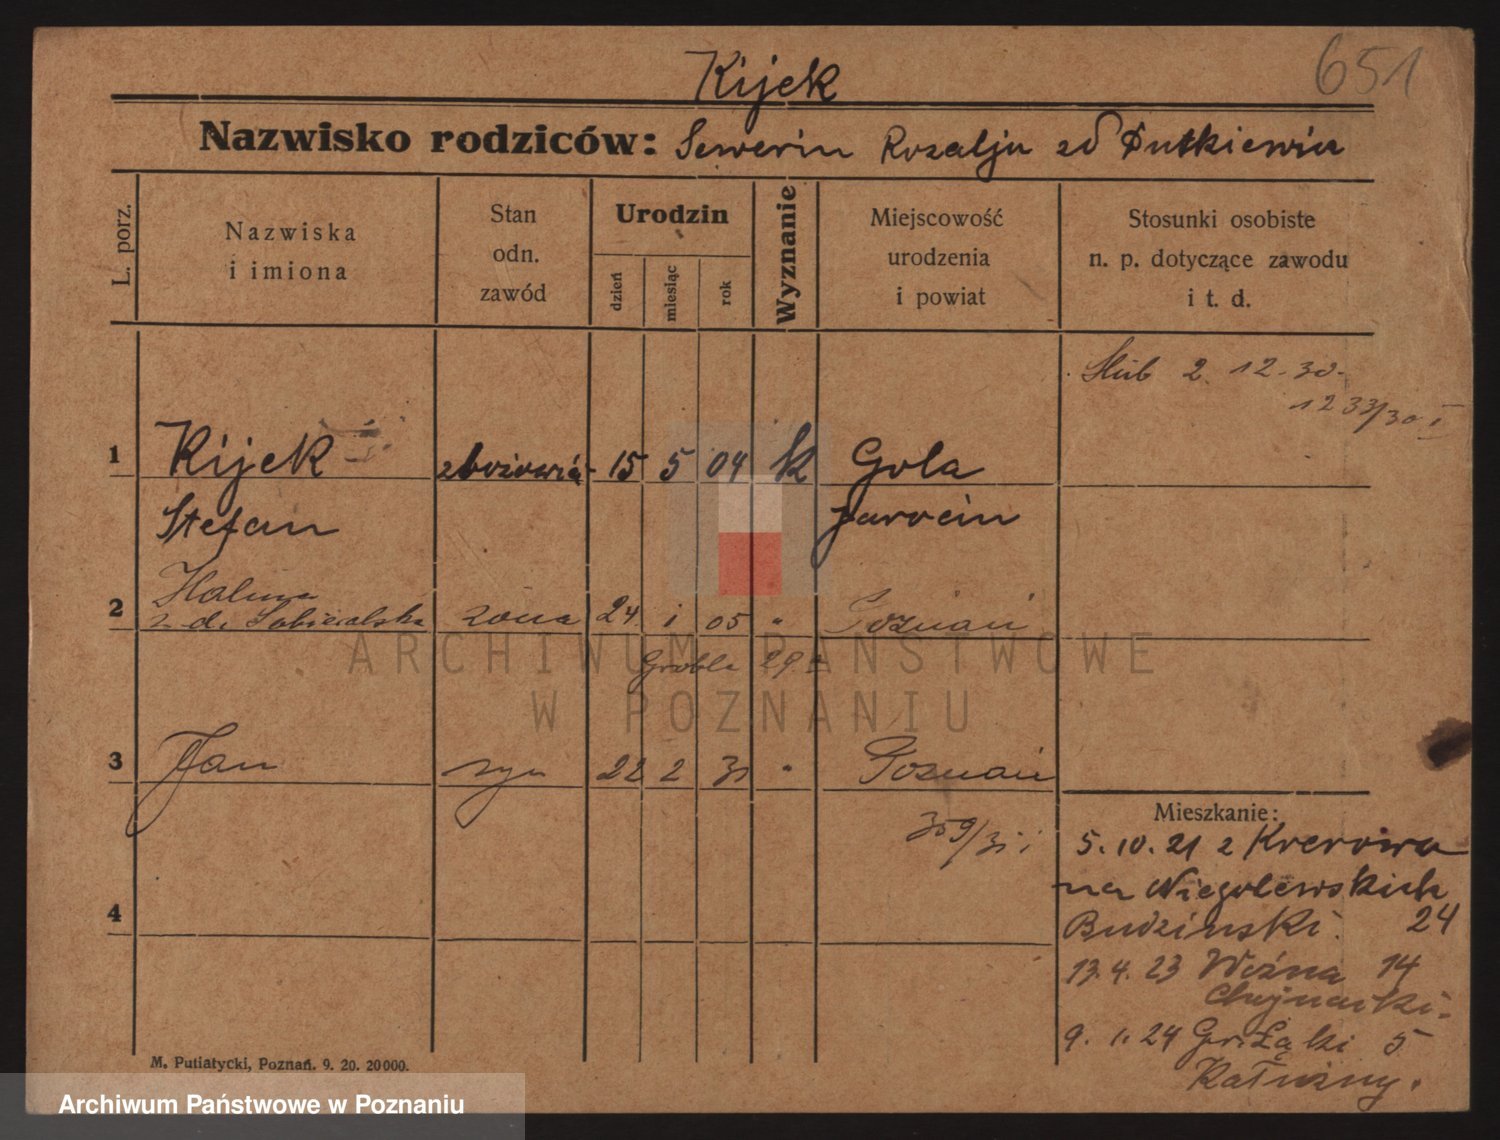 651
Kijek
Nazwisko rodziców: Seweryn Rozalja zd Dutkiewicz
L. porz.
Nazwiska
i imiona
Stan
odn.
zawód
Urodzin
dzień
miesiąc
rok
Wyznanie
Miejscowość
urodzenia
i powiat
Stosunki osobiste
n. p. dotyczące zawodu
i t. d.
Ślub 2. 12. 30.
1233/30 I
1 Kijek zbożowia- 15 5 04 k Gola
Stefan Jarocin
Halina
2 z d. Sobieralska żona 24 1 05 " Poznań
Grobla 29
3 Jan syn 22 2 31 " Poznań
359/31 I
4
Mieszkanie:
5. 10. 21 z Krerowa
na Niegolewskich
Budziński. 24
13. 4. 23 Woźna 14
Chojnacki.
9. 1. 24 Gr. Łąki 5
Kałużny.
M. Putiatycki, Poznań. 9. 20. 20000.
ARCHIWUM PAŃSTWOWE
W POZNANIU
Archiwum Państwowe w Poznaniu